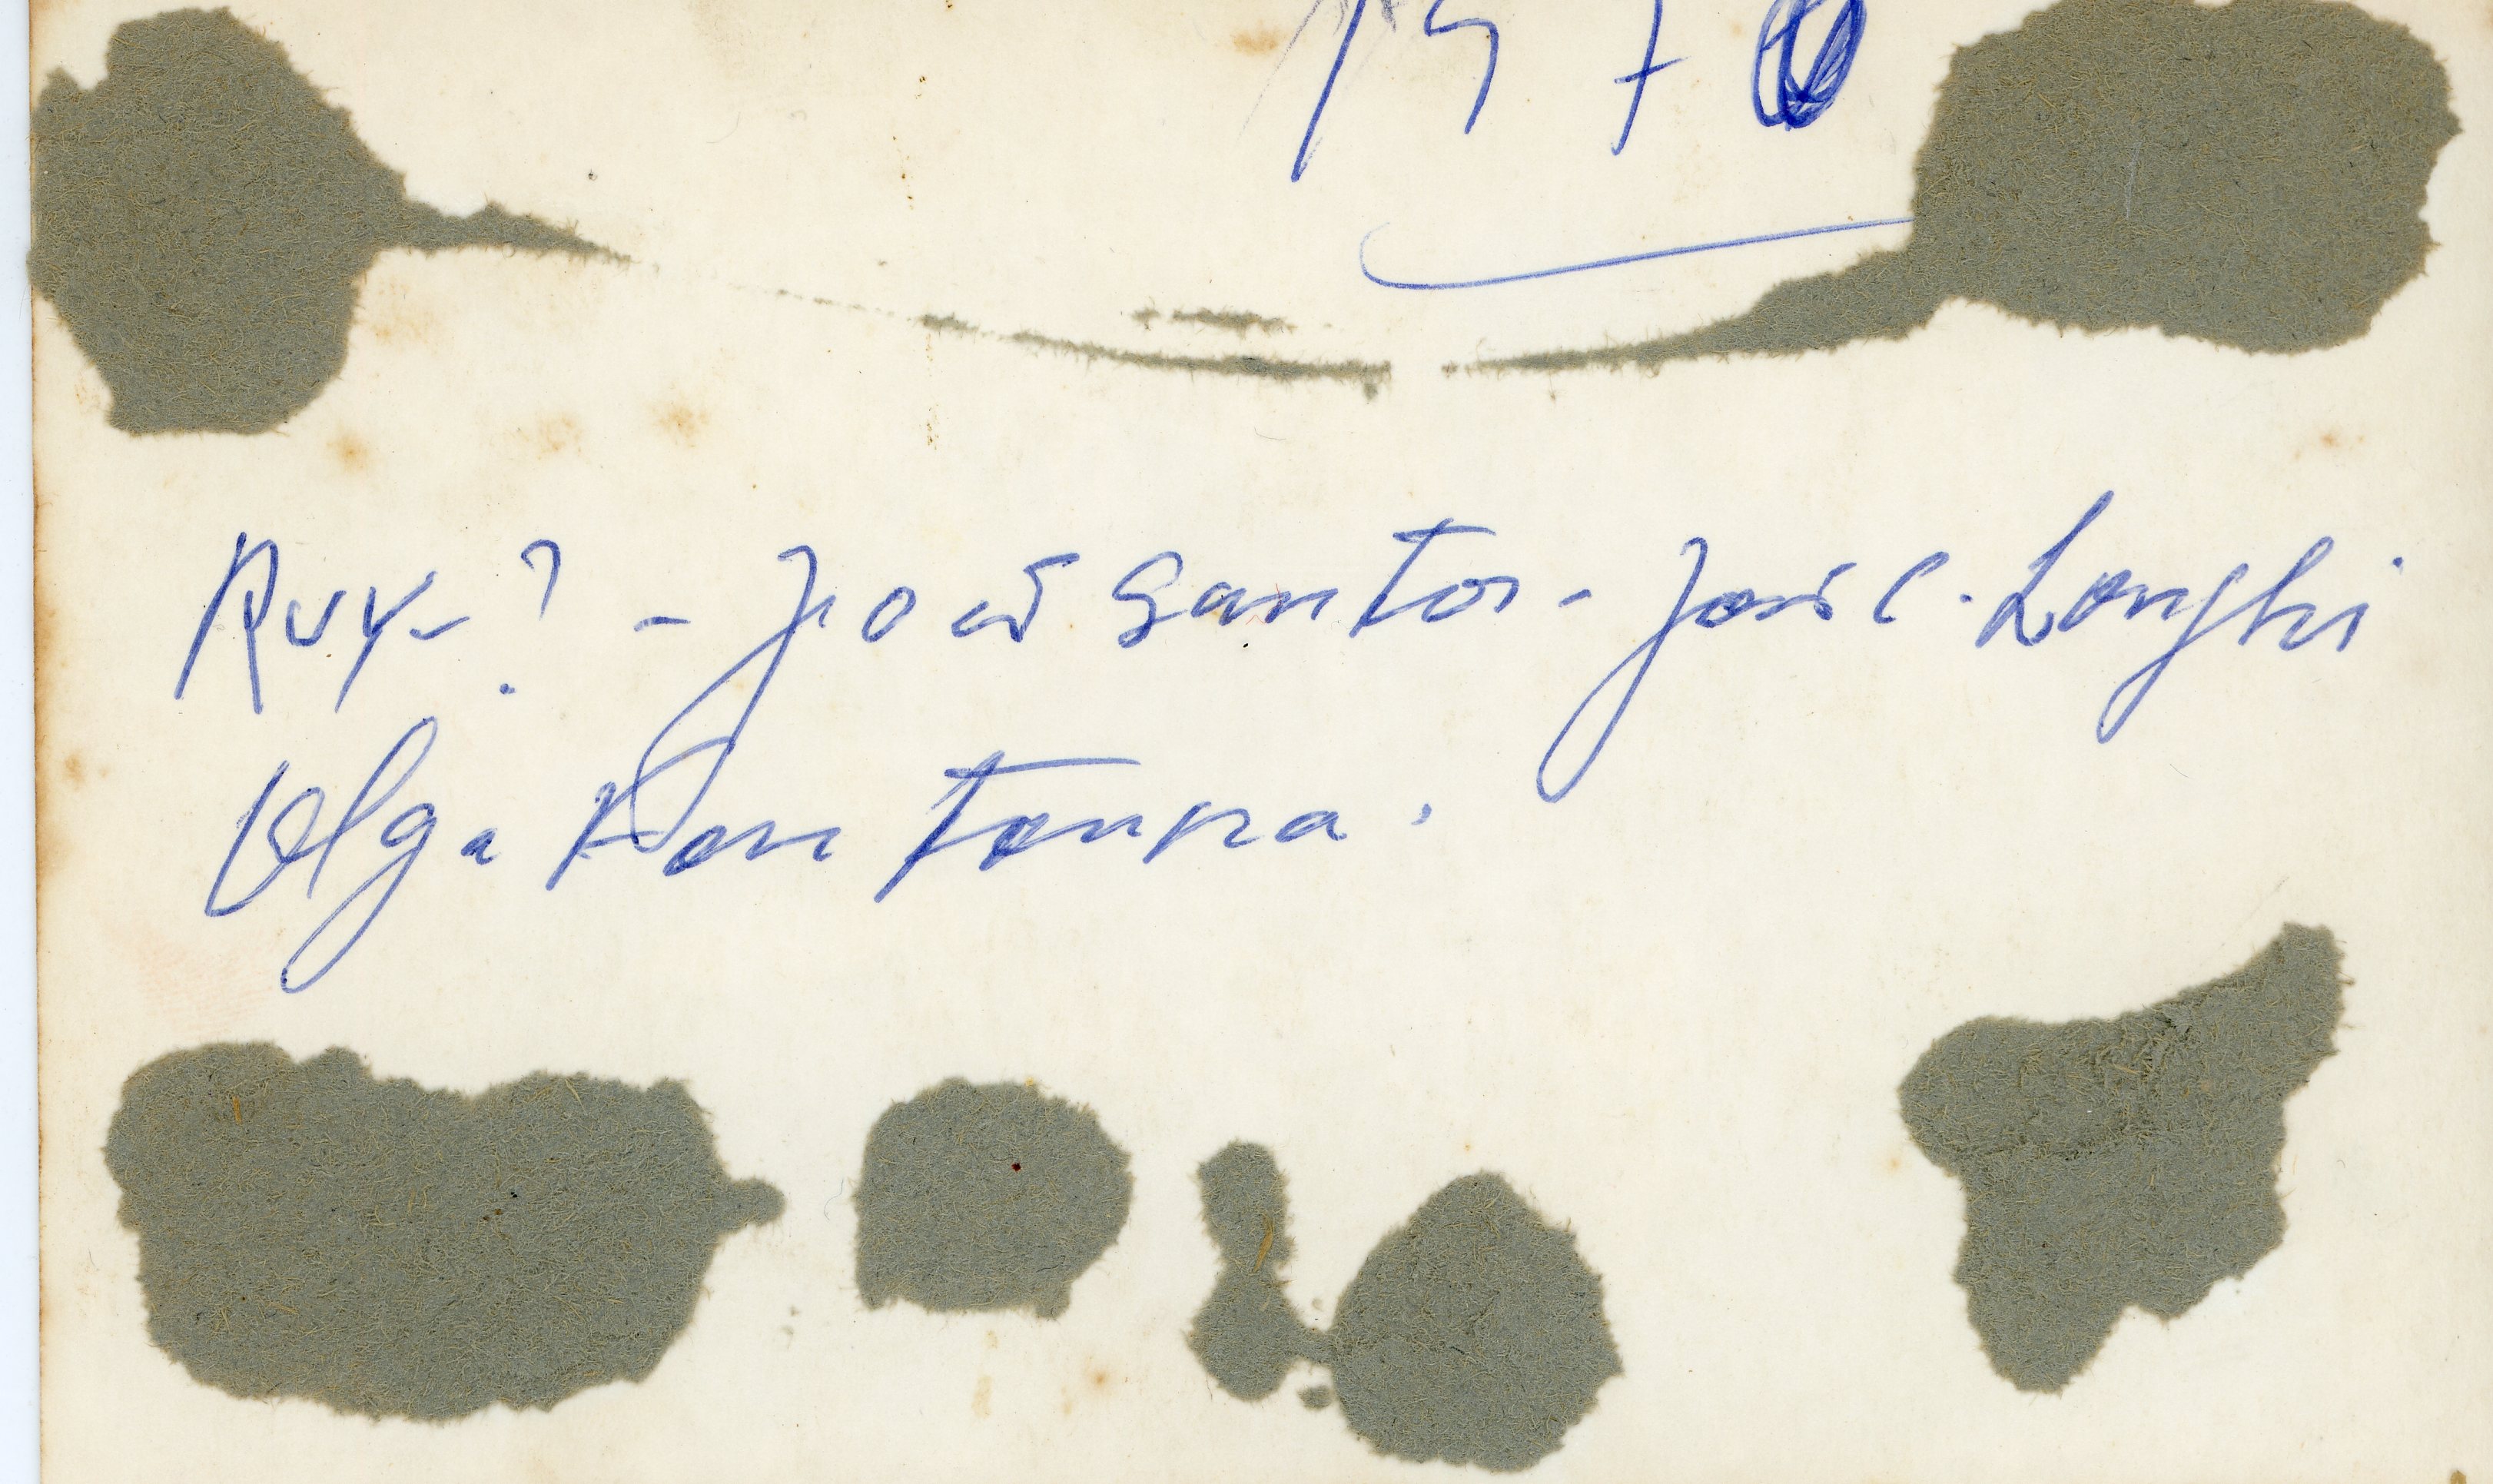 1970
Ruy - ? - João Santos - José C. Longhi
Olga Fontoura.